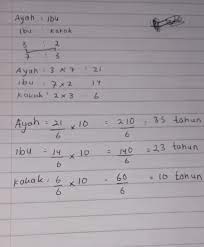 Ayah : Ibu
Ibu Kakak
3 : 2
7 : 3
Ayah : 3 x 7 : 21
Ibu : 7 x 2 14
Kakak : 2 x 3 : 6
Ayah = 21/6 x 10 = 210/6 = 35 tahun
Ibu = 14/6 x 10 = 140/6 = 23 tahun
Kakak = 6/6 x 10 - 60/6 = 10 tahun